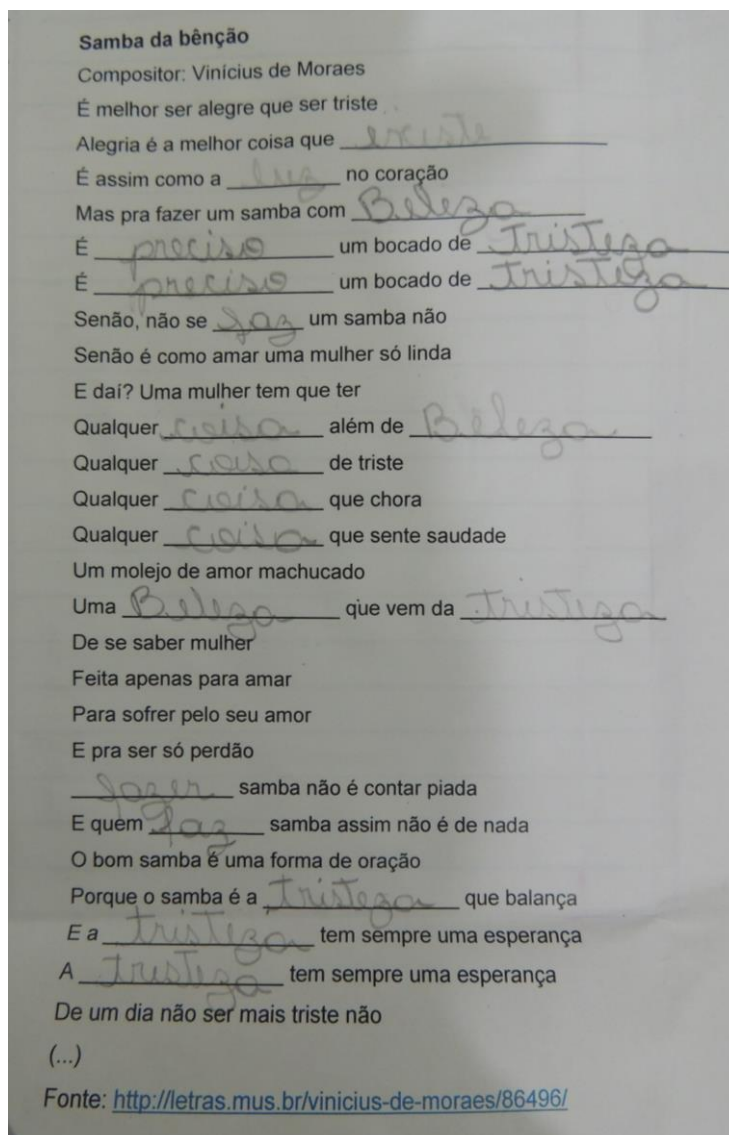 Samba da bênção
Compositor: Vinícius de Moraes
É melhor ser alegre que ser triste
Alegria é a melhor coisa que existe
É assim como a luz no coração
Mas pra fazer um samba com Beleza
É preciso um bocado de Tristeza
É preciso um bocado de Tristeza
Senão, não se faz um samba não
Senão é como amar uma mulher só linda
E daí? Uma mulher tem que ter
Qualquer coisa além de Beleza
Qualquer coisa de triste
Qualquer coisa que chora
Qualquer coisa que sente saudade
Um molejo de amor machucado
Uma Beleza que vem da Tristeza
De se saber mulher
Feita apenas para amar
Para sofrer pelo seu amor
E pra ser só perdão
fazer samba não é contar piada
E quem faz samba assim não é de nada
O bom samba é uma forma de oração
Porque o samba é a Tristeza que balança
E a Tristeza tem sempre uma esperança
A Tristeza tem sempre uma esperança
De um dia não ser mais triste não
(...)
Fonte: http://letras.mus.br/vinicius-de-moraes/86496/